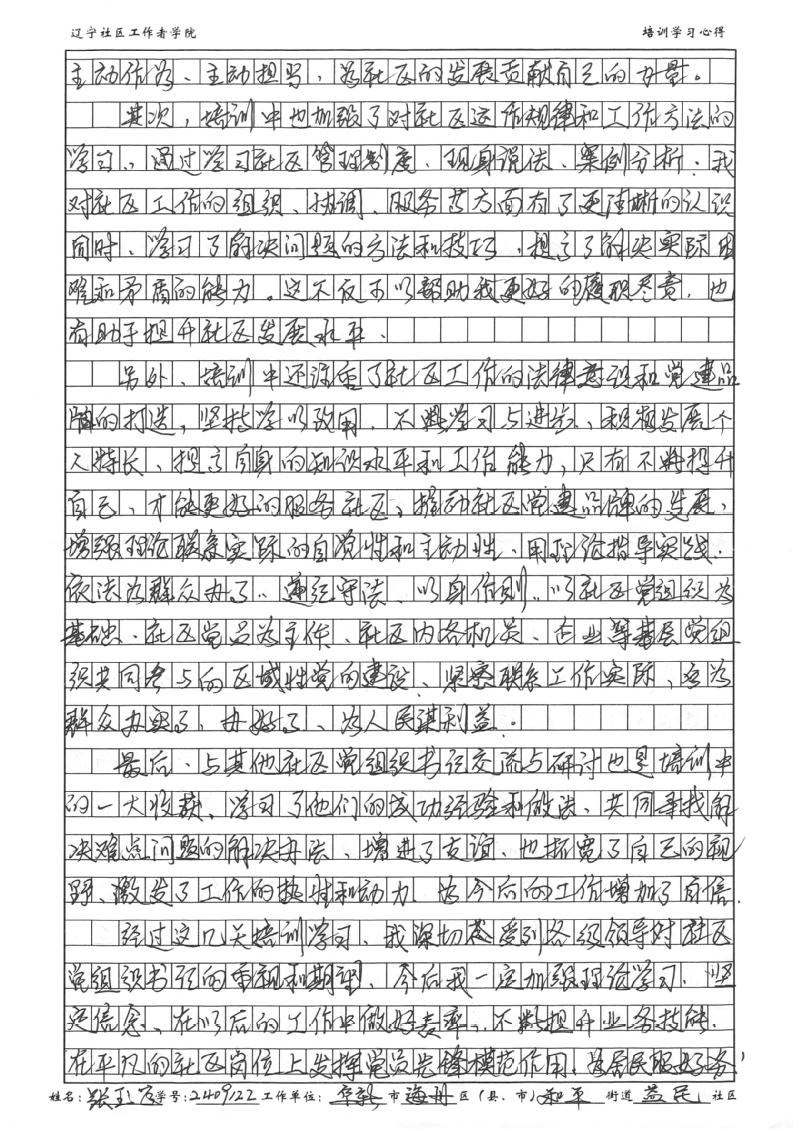 辽宁社区工作者学院 培训学习心得
主动作为、主动担当，为社区的发展贡献自己的力量。
其次，培训中也加强了对社区运作规律和工作方法的
学习，通过学习社区管理制度、现身说法、案例分析，我
对社区工作的组织、协调、服务等方面有了更清晰的认识
同时，学习了解决问题的方法和技巧，提高了解决实际困
难和矛盾的能力。这不仅可以帮助我更好的履职尽责，也
有助于提升社区发展水平。
另外，培训中还注重了社区工作的法律意识和党建品
牌的打造，坚持学以致用，不断学习与进步，积极发展个
人特长，提高自身的知识水平和工作能力，只有不断提升
自己，才能更好的服务社区，推动社区党建品牌的发展，
增强理论联系实际的自觉性和主动性，用理论指导实践，
依法为群众办事，遵纪守法、以身作则，以社区党组织为
基础，社区党员为主体，社区内各机关、企业等基层党组
织共同参与的区域性党的建设，紧密联系工作实际，多为
群众办实事，办好事，为人民谋利益。
最后，与其他社区党组织书记交流与研讨也是培训中
的一大收获，学习了他们的成功经验和做法，共同寻找解
决难点问题的解决办法，增进了友谊，也拓宽了自己的视
野、激发了工作的热性和动力，为今后的工作增加了自信。
经过这几天培训学习，我深切感受到各级领导对社区
党组织书记的重视和期望，今后我一定加强理论学习，坚
定信念，在以后的工作中做好表率，不断提升业务技能，
在平凡的社区岗位上发挥党员先锋模范作用，为居民服好务！
姓名：张玉 学号：2409122 工作单位：阜新 市 海州 区（县、市）和平 街道 益民 社区